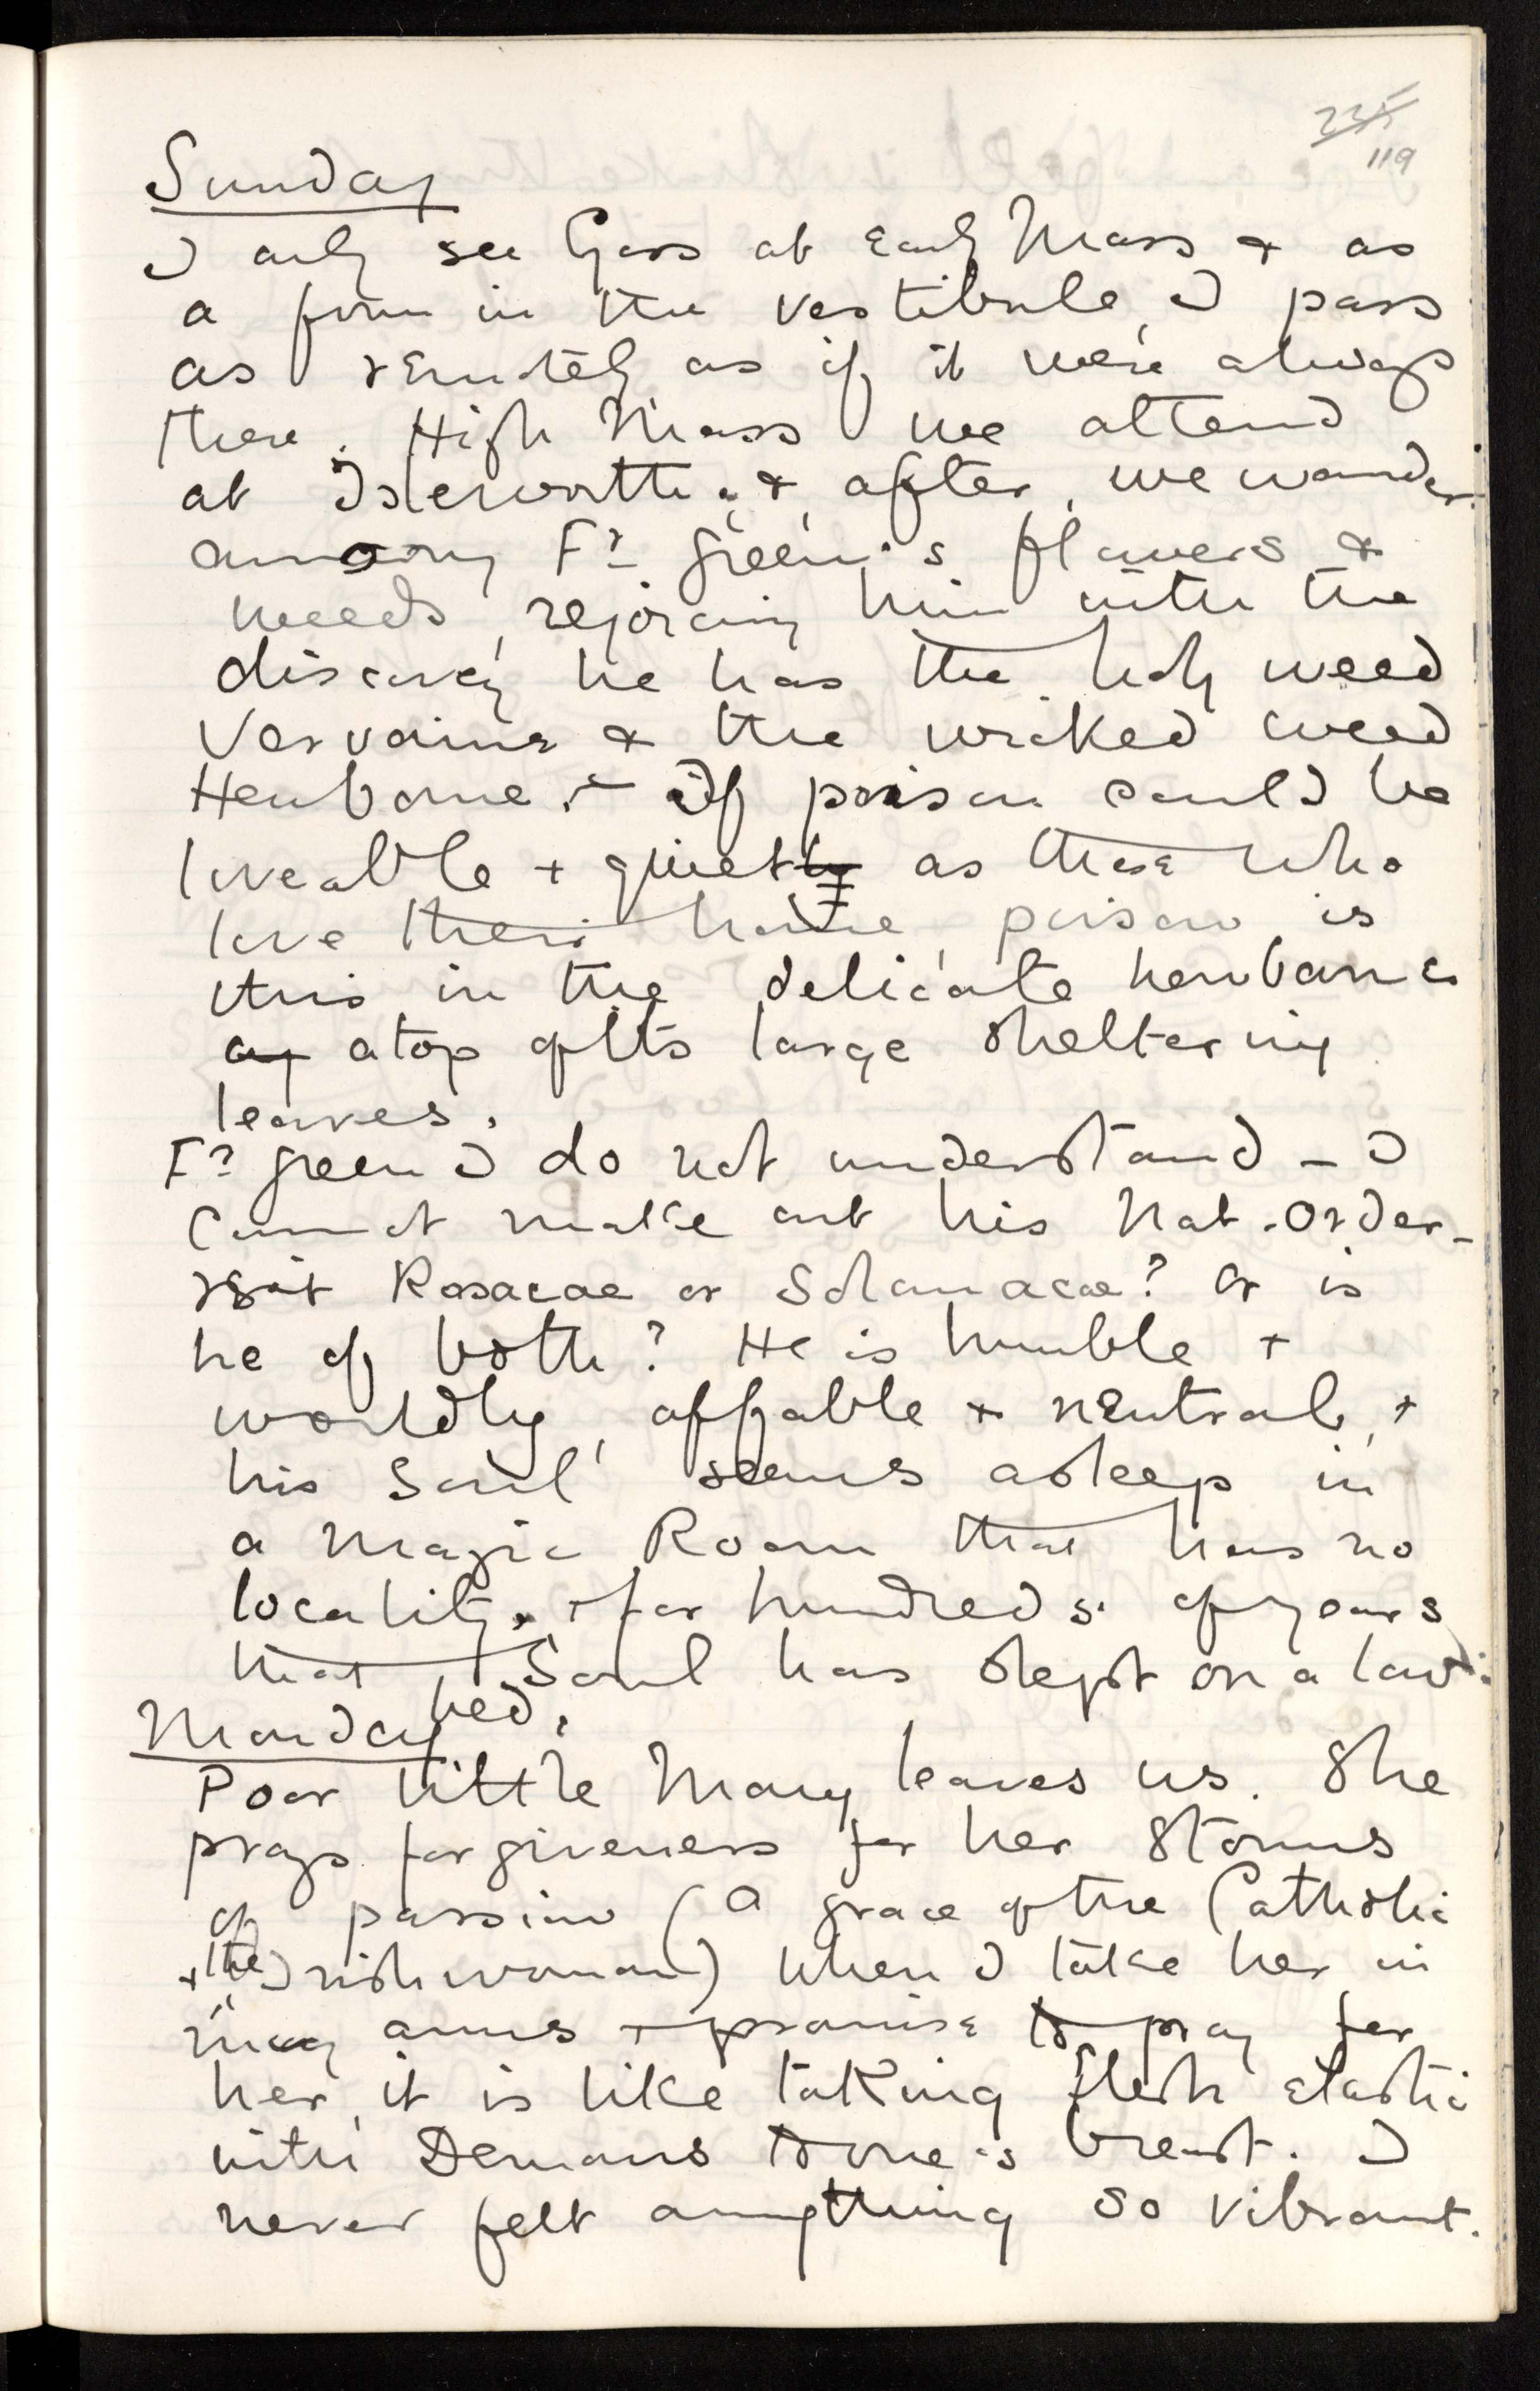 235
119
Sunday
I only see Goss at Early Mass & as
a form in the vestibule, I pass
as remotely as if it were always
there. High Mass we attend
at Isleworth. & after, we wander
among Fr Green's flowers &
weeds, rejoicing him with the
discovery he has the holy weed
Vervaine & the wicked weed
Henbane. — If poison could be
liveable + quiet as those who
love their home, poison is
this in the delicate henbane
atop of its large sheltering
leaves.
Fr Green I do not understand — I
cannot make out his Nat. Order —
is it Rosacae or Solanacae? Or is
he of both? He is humble +
worldly, affable + neutral, +
his Soul seems asleep in
a Magic Room that has no
locality. + for hundreds of years
that Soul has slept on a low
bed.
Monday
Poor little Mary leaves us. She
prays forgiveness for her storms
of passion (a grace of the Catholic
+ the Irishwoman) When I take her in
my arms + promise to pray for
her, it is like taking flesh elastic
with Demons to one's breast. I
never felt anything so vibrant.